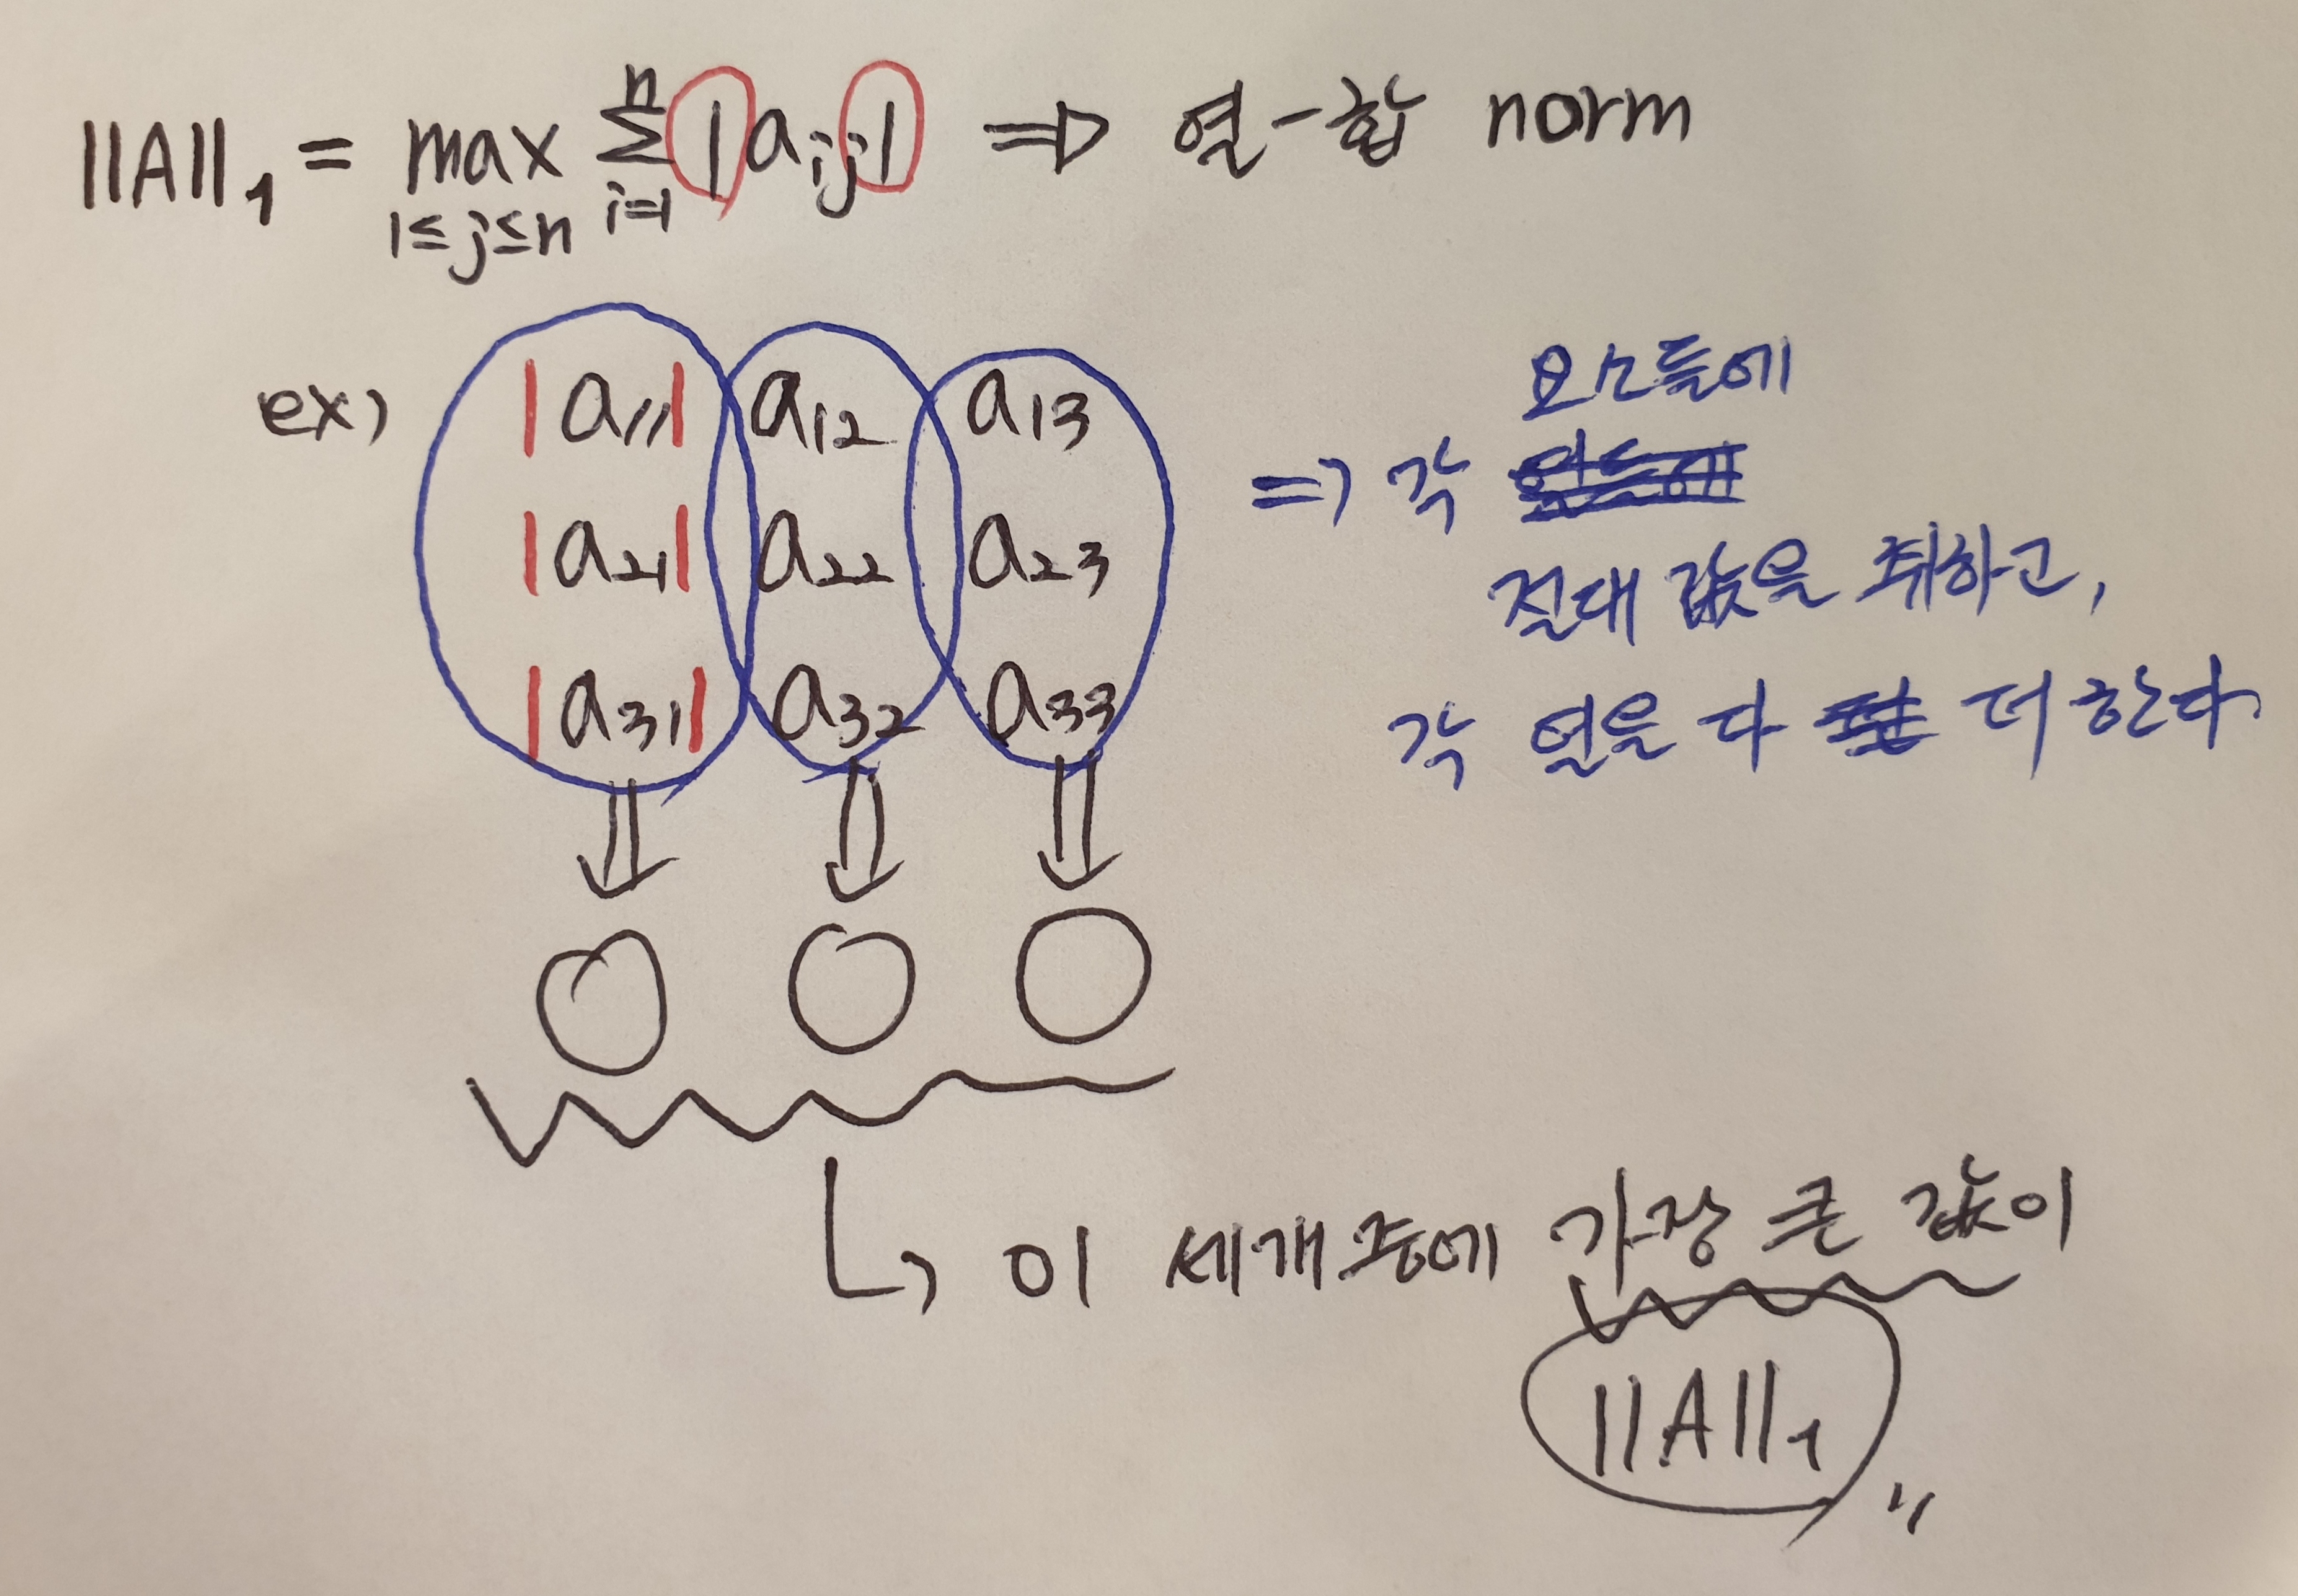 ||A||₁ = max Σ |aᵢⱼ| ⇒ 열-합 norm
1≤j≤n i=1 n
ex) |a₁₁| a₁₂ a₁₃
|a₂₁| a₂₂ a₂₃
|a₃₁| a₃₂ a₃₃
요소들에
⇒ 각
절대 값을 취하고,
각 열을 다 더한다.
↳ 이 세개중에 가장 큰 값이
||A||₁ 〃